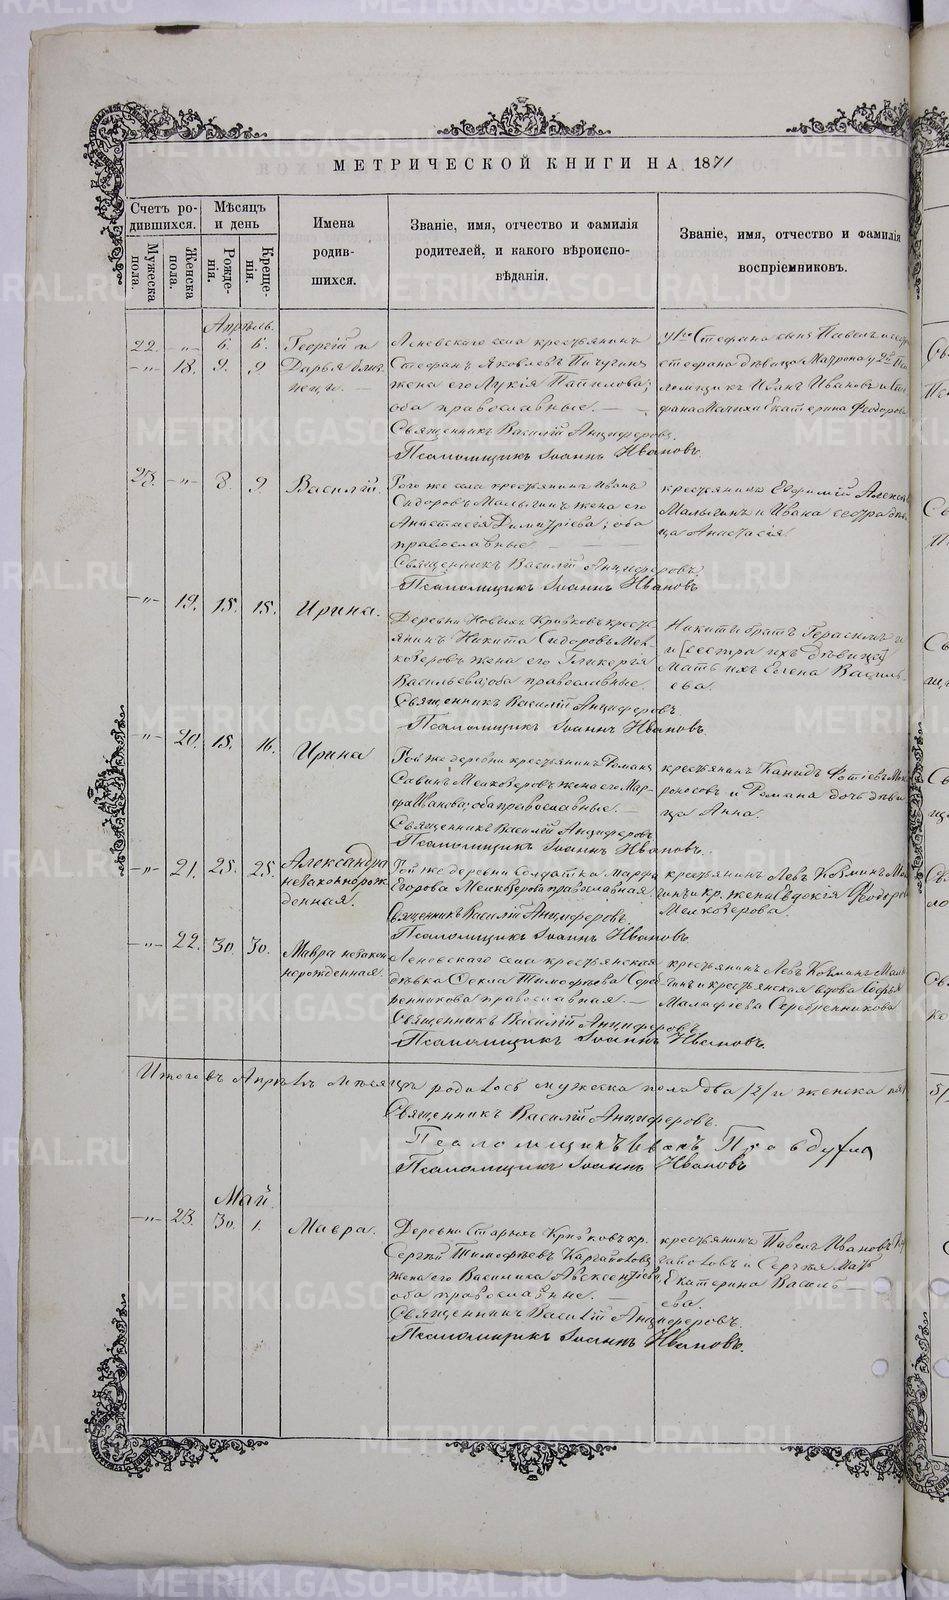 МЕТРИЧЕСКОЙ КНИГИ НА 1871
Счетъ ро-
дившихся.
Мужеска
пола.
Женска
пола.
Мѣсяцъ
и день
Рожде-
нія.
Креще-
нія.
Имена
родив-
шихся.
Званіе, имя, отчество и фамилія
родителей, и какого вѣроиспо-
вѣданія.
Званіе, имя, отчество и фамилія
воспріемниковъ.
Апрѣль.
22. -"- 6. 6. Георгій и
-"- 18. 9. 9 Дарья близ
нецы. —
Леневскаго села крестьянинъ
Стефанъ Яковлевъ Пичугинъ
жена его Лукія Папилова;
оба православные. —
Священникъ Василій Анциферовъ.
Псаломщикъ Іоаннъ Ивановъ.
Стефана сынъ Павелъ и сестр
стефана дѣвица Матрона; у 2й Пса
ломщикъ Иванъ Ивановъ и Сте
фана Мачиха Екатерина Феодоров
23. -"- 8. 9. Василій.
Того же села крестьянинъ Иванъ
Сидоровъ Малыгинъ жена его
Анастасія Димитріева; оба
православные
Священникъ Василій Анциферовъ
Псаломщикъ Іоаннъ Ивановъ
крестьянинъ Евфимій Алексѣ
Малыгинъ и Ивана сестра дѣви
ца Анастасія.
-"- 19. 15. 15. Ирина.
Деревни Новыхъ Кривковъ кресть
янинъ Никита Сидоровъ Мел
козеровъ жена его Гликерія
Васильева; оба православные.
Священникъ Василій Анциферовъ
Псаломщикъ Іоаннъ Ивановъ
Никиты братъ Герасимъ и
и [сестра ихъ дѣвица]
Мать ихъ Елена Василь-
ева.
-"- 20. 15. 16. Ирина
Той же деревни крестьянинъ Романъ
Савинъ Мелкозеровъ жена его Мар-
фа Иванова; оба православные. —
Священникъ Василій Анциферовъ
Псаломщикъ Іоаннъ Ивановъ.
крестьянинъ Фотіевъ Мок
роносовъ и Романа дочь дѣви
ца Анна.
-"- 21. 25. 25. Александра
незаконнорож
денная.
Той же деревни солдатка Марфа
Егорова Мелкозерова православная
Священникъ Василій Анциферовъ.
Псаломщикъ Іоаннъ Ивановъ
крестьянинъ Левъ Козминъ Ма
и кр. жена Евдокія Феодоров
Мелкозерова.
-"- 22. 30. 30. Мавра незакон
норожденная.
Леневскаго села крестьянская
дѣвка Фекла Тимофѣева Сереб
ренникова православная. —
Священникъ Василій Анциферовъ
Псаломщикъ Іоаннъ Ивановъ.
крестьянинъ Левъ Козминъ Малы
гинъ и крестьянская вдова Софья
Малафіева Серебренникова
Итого въ Апрѣлѣ мѣсяцѣ родилось мужеска пола два /2/ и женска по
Священникъ Василій Анциферовъ.
Псаломщикъ
Псаломщикъ Іоаннъ Ивановъ
Май.
-"- 23. 30. 1. Мавра.
Деревни Старыхъ Кривковъ кр.
Сергѣй Тимофѣевъ Каргаполовъ
жена его Василиса Авксентіева
оба православные. —
Священникъ Василій Анциферовъ.
Псаломщикъ Іоаннъ Ивановъ.
крестьянинъ Павелъ Ивановъ Кар
гаполовъ и Сергѣя Мать
Екатерина Василь
ева.